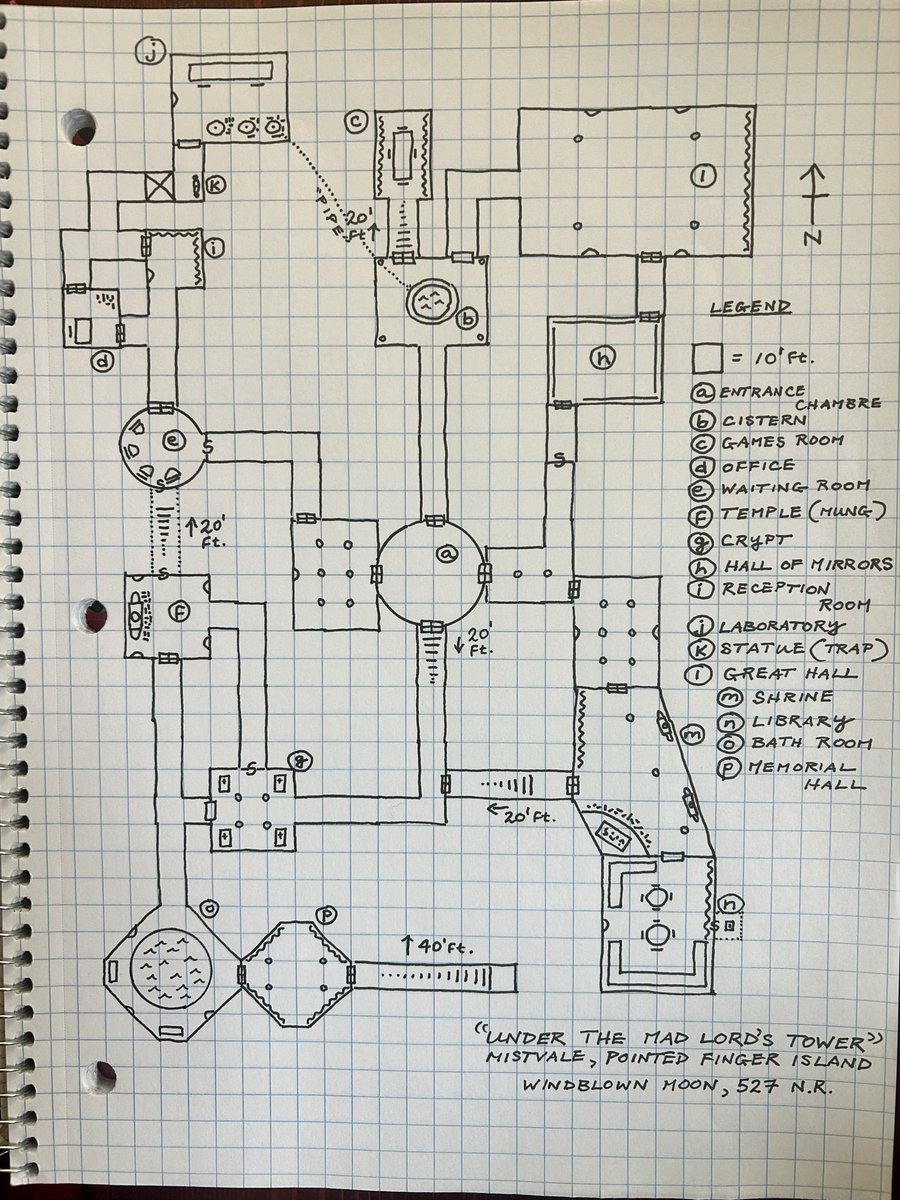 j
c
k
l
"PIPE"
20'
Ft
N
i
b
LEGEND
= 10'Ft.
h
d
a ENTRANCE
CHAMBRE
b CISTERN
c GAMES ROOM
e
S
d OFFICE
S
e WAITING ROOM
S
20'
Ft.
F TEMPLE (MUNG)
g CRYPT
a
h HALL OF MIRRORS
S
i RECEPTION
ROOM
F
20'
Ft.
j LABORATORY
k STATUE (TRAP)
l GREAT HALL
m SHRINE
m
n LIBRARY
o BATH ROOM
p MEMORIAL
HALL
g
S
20'Ft.
SUN
n
S
o
p
40'Ft.
"UNDER THE MAD LORD'S TOWER"
MISTVALE, POINTED FINGER ISLAND
WINDBLOWN MOON, 527 N.R.